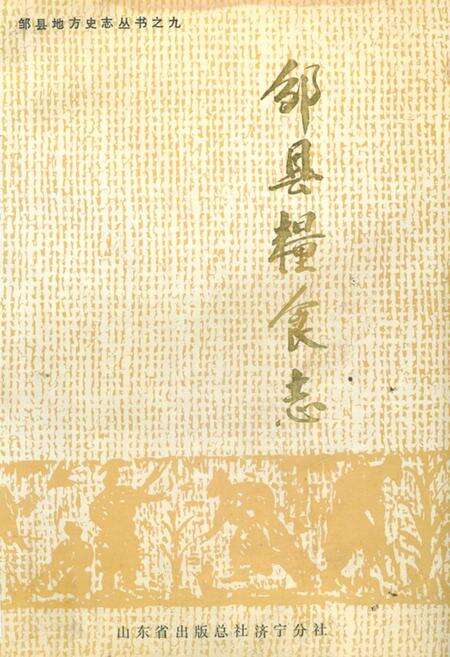 邹县地方史志丛书之九
邹县糧食志
山东省出版总社济宁分社